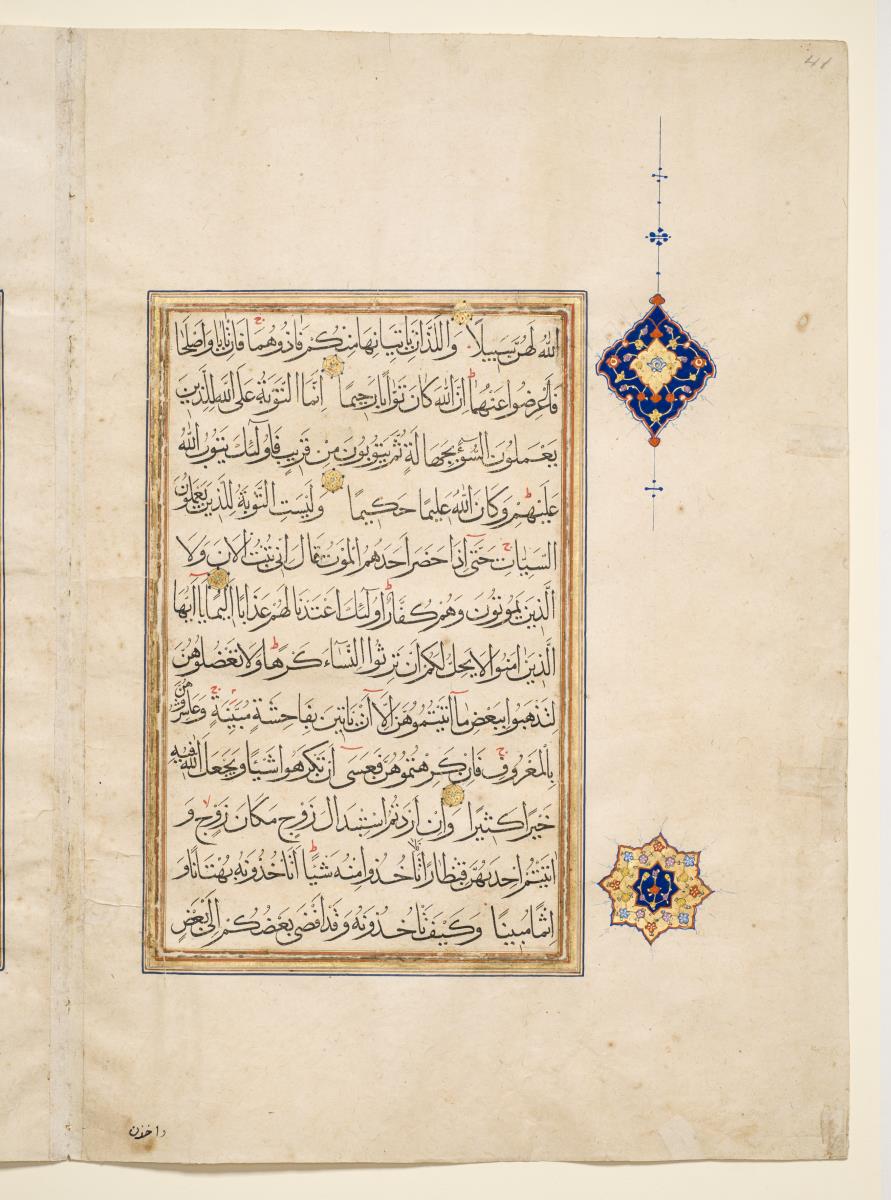 41
اللهُ لَهُنَّ سَبِيلًا وَاللَّذَانِ يَاتِيَانِهَا مِنكُمْ فَاذُوهُمَا فَاِنْ تَابَا وَاَصْلَحَا
فَاَعْرِضُوا عَنْهُمَا اِنَّ اللهَ كَانَ تَوَّابًا رَحِيمًا اِنَّمَا التَّوْبَةُ عَلَى اللهِ لِلَّذِينَ
يَعْمَلُونَ السُّوٓءَ بِجَهَالَةٍ ثُمَّ يَتُوبُونَ مِنْ قَرِيبٍ فَاُولٰٓئِكَ يَتُوبُ اللهُ
عَلَيْهِمْ وَكَانَ اللهُ عَلِيمًا حَكِيمًا وَلَيْسَتِ التَّوْبَةُ لِلَّذِينَ يَعْمَلُونَ
السَّيِّاتِ حَتّٰٓى اِذَا حَضَرَ اَحَدَهُمُ الْمَوْتُ قَالَ اِنِّى تُبْتُ الْانَ وَلَا
الَّذِينَ يَمُوتُونَ وَهُمْ كُفَّارٌ اُولٰٓئِكَ اَعْتَدْنَا لَهُمْ عَذَابًا اَلِيمًا يَٓا اَيُّهَا
الَّذِينَ اٰمَنُوا لَا يَحِلُّ لَكُمْ اَنْ تَرِثُوا النِّسَٓاءَ كَرْهًا وَلَا تَعْضُلُوهُنَّ
لِتَذْهَبُوا بِبَعْضِ مَٓا اٰتَيْتُمُوهُنَّ اِلَّٓا اَنْ يَاتِينَ بِفَاحِشَةٍ مُبَيِّنَةٍ وَعَاشِرُوهُنَّ
بِالْمَعْرُوفِ فَاِنْ كَرِهْتُمُوهُنَّ فَعَسٰٓى اَنْ تَكْرَهُوا شَيْـًٔا وَيَجْعَلَ اللهُ فِيهِ
خَيْرًا كَثِيرًا وَاِنْ اَرَدْتُمُ اسْتِبْدَالَ زَوْجٍ مَكَانَ زَوْجٍ وَ
اٰتَيْتُمْ اِحْدٰيهُنَّ قِنْطَارًا فَلَا تَاْخُذُوا مِنْهُ شَيْـًٔا اَتَاْخُذُونَهُ بُهْتَانًا وَ
اِثْمًا مُبِينًا وَكَيْفَ تَاْخُذُونَهُ وَقَدْ اَفْضٰى بَعْضُكُمْ اِلٰى بَعْضٍ